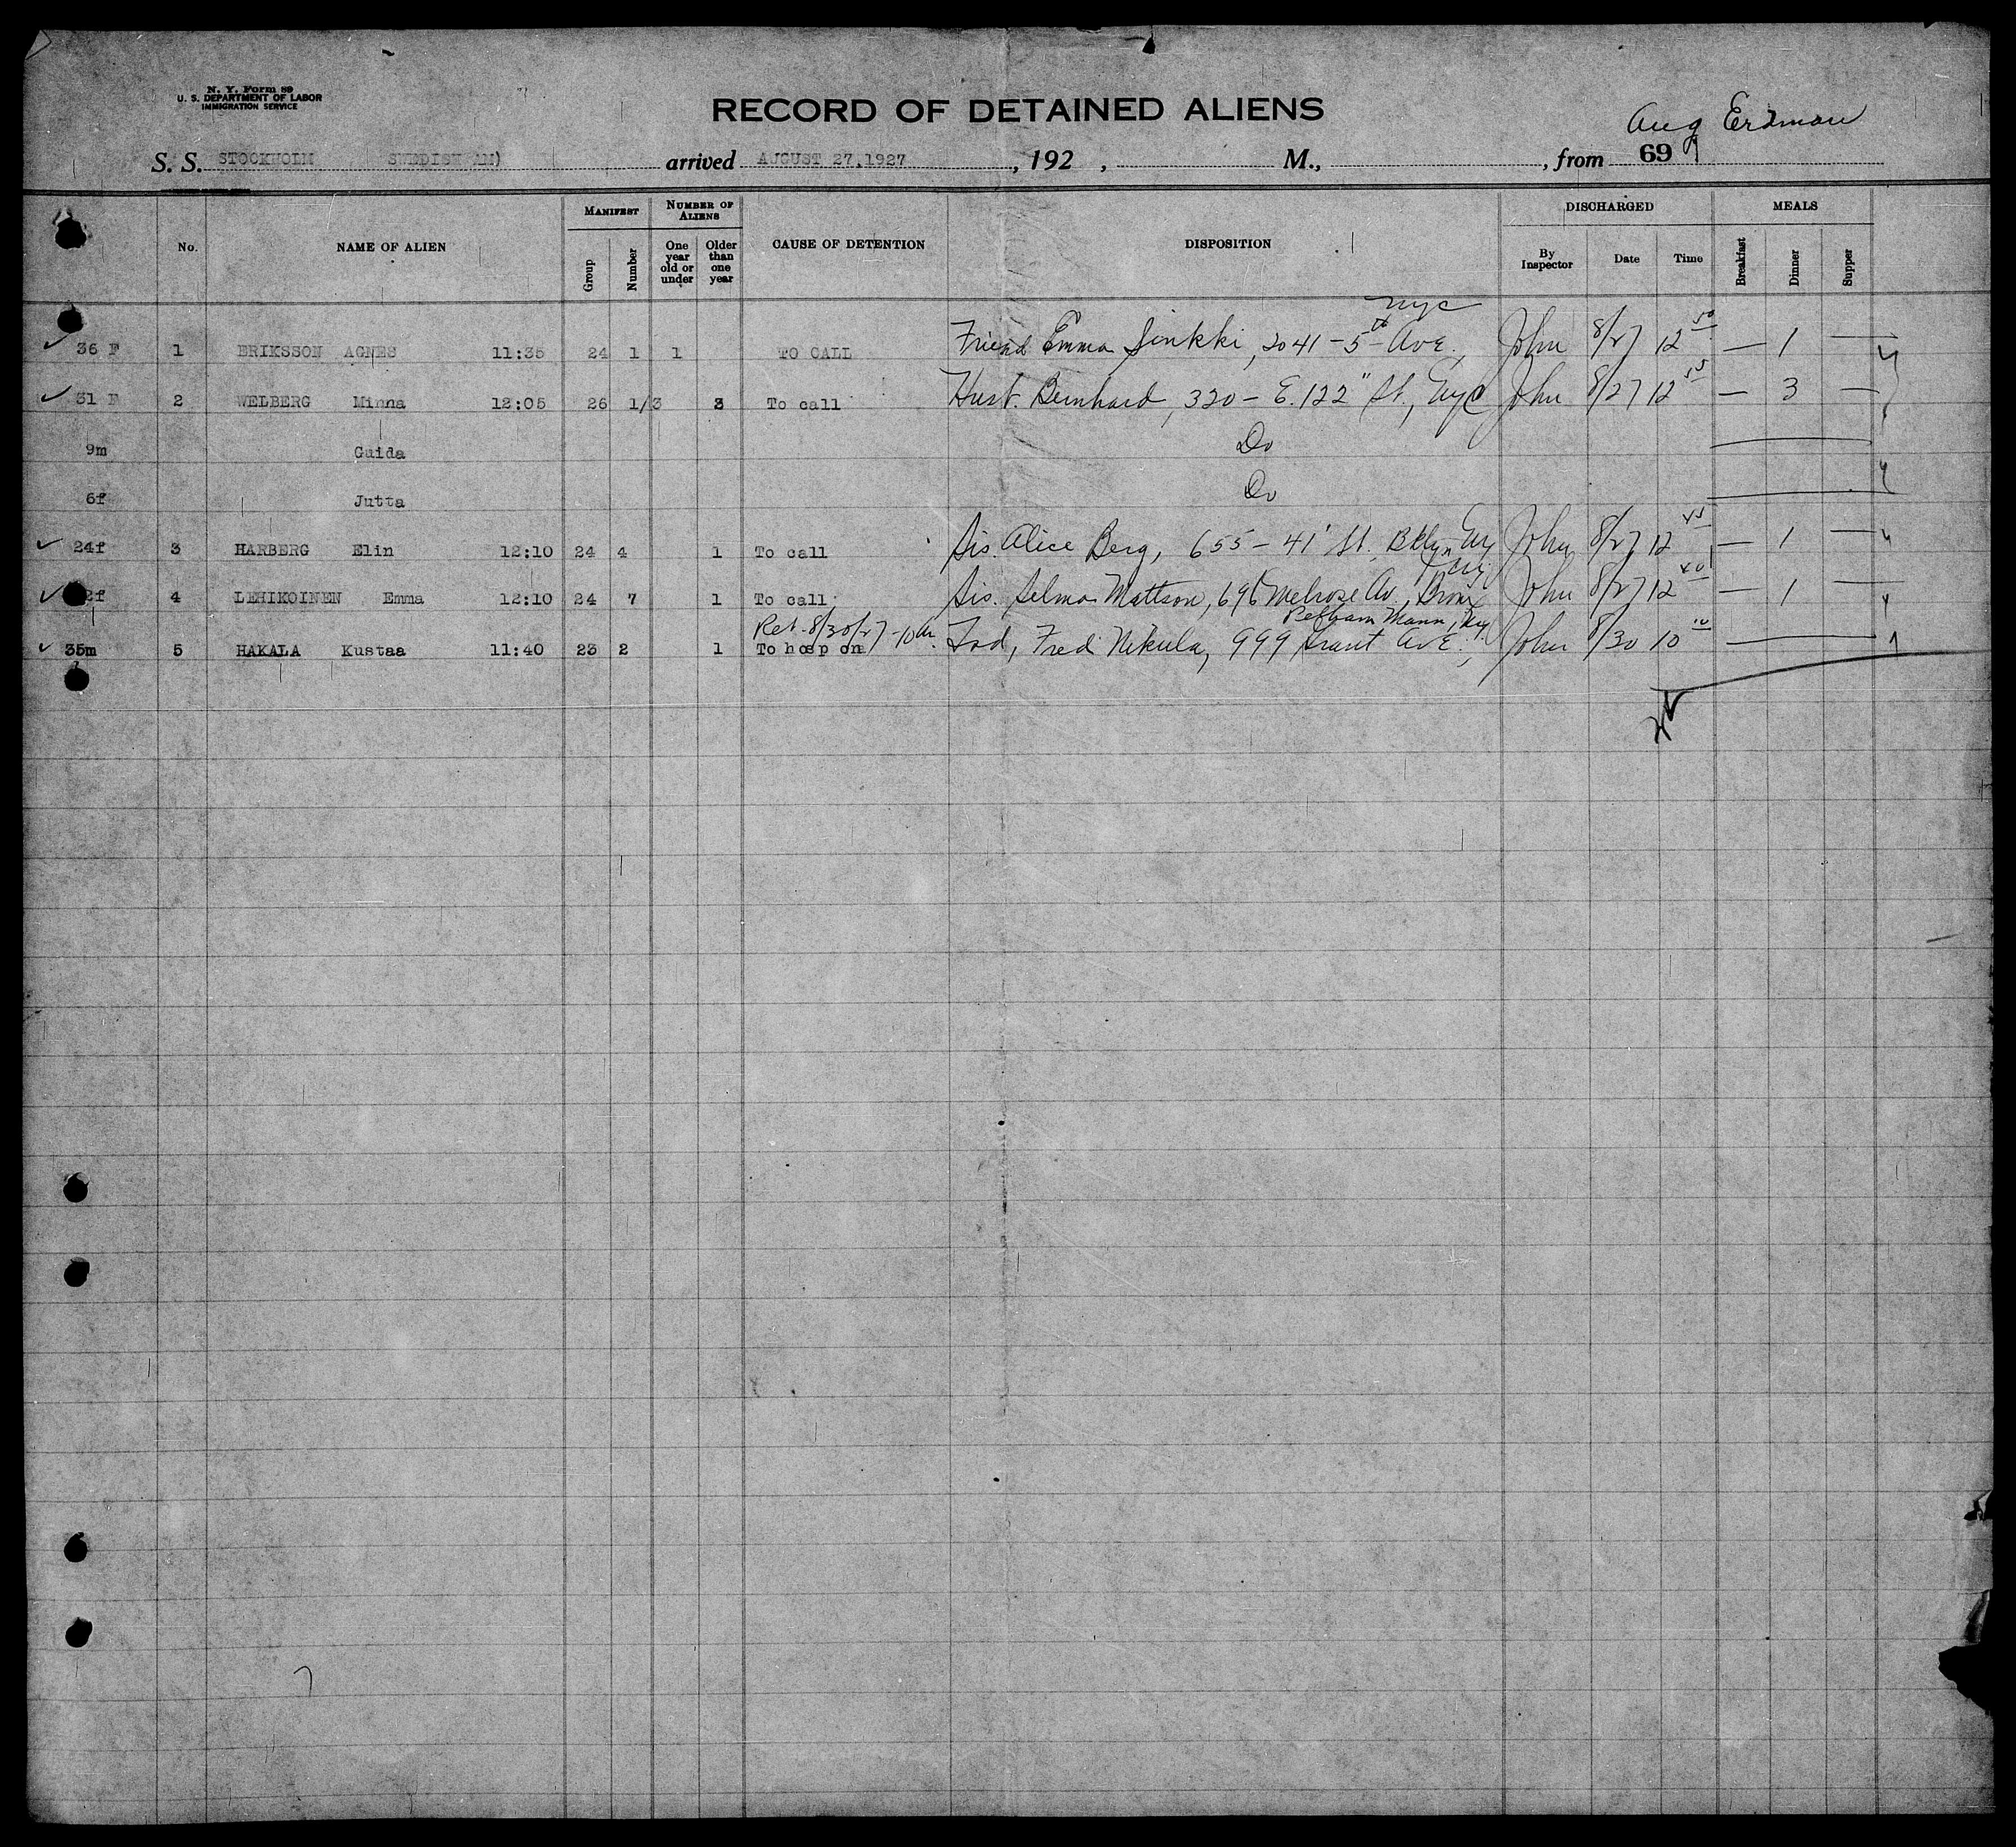 N. Y. Form 89
U. S. DEPARTMENT OF LABOR
IMMIGRATION SERVICE
RECORD OF DETAINED ALIENS
Aug Erdman
S. S. STOCKHOLM SWEDISH AM) arrived AUGUST 27,1927 , 192 , M., , from 69
No. NAME OF ALIEN MANIFEST Group Number NUMBER OF ALIENS One year old or under Older than one year CAUSE OF DETENTION DISPOSITION DISCHARGED By Inspector Date Time MEALS Breakfast Dinner Supper
nyc
36 F 1 ERIKSSON AGNES 11:35 24 1 1 TO CALL Friend Emma Sinkki, 2041 - 5th Ave, John 8/27 12 50 — 1 —
31 F 2 WELBERG Minna 12:05 26 1/3 3 To call Husb. Bernhard, 320 - E. 122" St., nyc John 8/27 12 55 — 3 —
9m Guida Do
6f Jutta Do
24f 3 HARBERG Elin 12:10 24 4 1 To call Sis. Alice Berg, 655 - 41' St. Bklyn Ny John 8/27 12 45 — 1 —
Ny
2f 4 LEHIKOINEN Emma 12:10 24 7 1 To call Sis. Selma Mattson, 696 Melrose Av, Bronx John 8/27 12 40 — 1 —
Ret. 8/30/27 - 10 am. Pelham Mann, Ny
35m 5 HAKALA Kustaa 11:40 23 2 1 To hosp on Fred Nikula, 999 Grant Ave., John 8/30 10 10